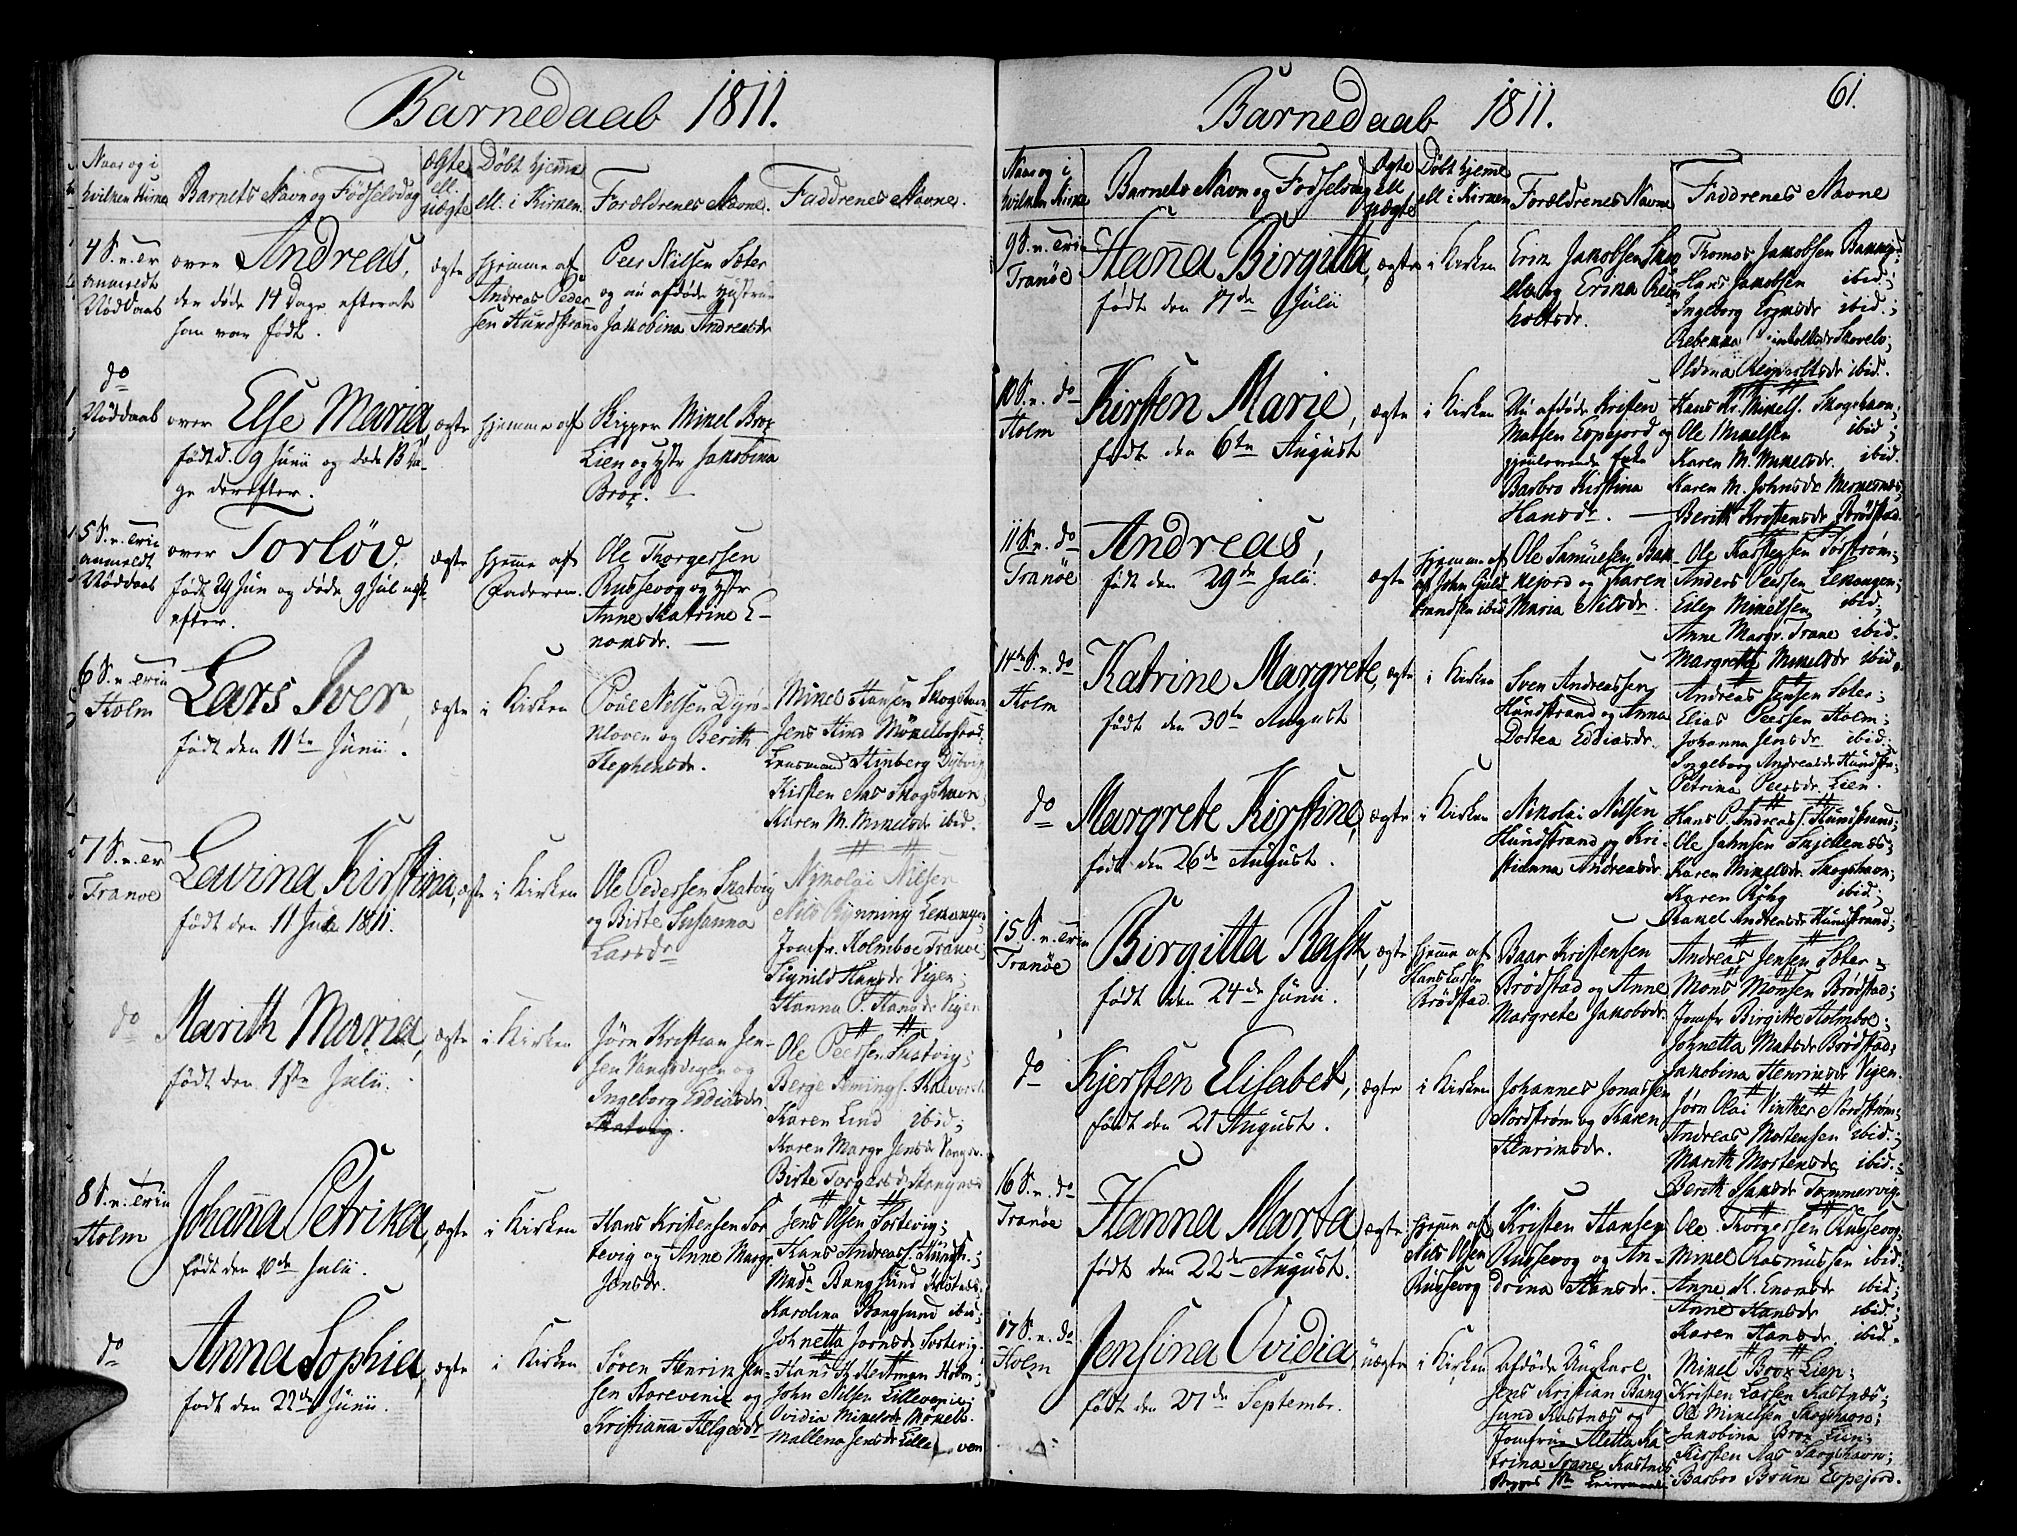 Barnedaab 1811.
Naar og i hvilken Kirke
Barnets Navn og Fødselsdag
ægte ell. uægte
Døbt hjemme ell. i Kirken.
Forældrenes Navne.
Faddrenes Navne.
4 S. n. Tr anmeldt Nøddaab
over Andreas,
der døde 14 Dage efterat
han var født.
ægte
hjemme af
Andreas Peder-
sen Hundstrand
Peer Nilsen Sæter
og nu afdøde Hustrue
Jakobina Andreasdr
do Nøddaab
over Else Maria,
født d. 9 Junii og døde 13 Da-
ge derefter.
ægte
hjemme af
Skipper Mikel Brox
Lien og Hstr Jakobina
Brox.
5 S. n. Trin anmeldt Nøddaab
over Torlöv,
født 29 Jun og døde 9 Jul
efter.
ægte
hjemme af
Faderen.
Ole Thorgersen
Russevog og Hstr
Anne Katrine E-
nomsdr.
6 S. n. Trin Holm
Lars Iver,
født den 11te Junii.
ægte
i Kirken
Povel Nilsen Dyrø-
kloven og Berith
Stephensdr.
Mikel Hansen Skogshavn
Jens Hind Mökelbostad
Lensmand Stinberg Dybvig
Kirsten Aas Skogshavn;
Karen M. Mikelsdr ibid.
7 S. n. Tr Tranøe
Lavina Kirstina,
født den 11 Jul 1811.
ægte
i Kirken
Ole Pedersen Skatvig
og Birte Susanna
Larsdr
Nikolai Nilsen
Nils Rynning Lekangen;
Jomfr. Holmboe Tranøe;
Signild Hansdr Vigen;
Hanna P. Hansdr Vigen
do
Marith Maria,
født den 1ste Julii.
ægte
i Kirken
Jørn Kristian Jen-
sen Vangsvigen og
Ingeborg Eddiasdr
Skatvig.
Ole Peersen Skatvig;
Berge Fleming
Karen Lind ibid;
Karen Margr Jensdr Vangsv.
Birte Torgersdr
8 S. n. Trin Holm
Johanna Petrika,
født den 10de Julii.
ægte
i Kirken
Hans Kristensen Sor-
tevig og Anne Margr
Jonsdr.
Jens Olsen Sortevig;
Hans Andreass. Hundstr.;
Mad. Bangsund Kastnæs;
Karolina Bangsund ibid;
Johnetta Jørnsdr Sortevig.
do
Anna Sophia,
født den 22de Junii.
ægte
i Kirken
Søren Henrik Jen-
sen Storevenie og
Kristianna Helgesdr
Hans H. Hertman Holm;
John Nilsen Lillevenie;
Ovidia Mikelsdr Mökelb.
Mallena Jensdr Lille ven
61.
Barnedaab 1811.
Naar og i hvilken Kirke
Barnets Navn og Fødselsdag
Ægte ell uægte
Døbt hjemme ell i Kirken
Forældrenes Navne
Faddrenes Navne
9 S. n. Trin Tranöe
Hanna Birgitta,
født den 17de Julii
ægte
i Kirken
Erik Jakobsen Skov-
elv og Erika Rein-
holtsdr.
Thomas Jakobsen
Hans Jakobsen ibid;
Ingeborg ibid.;
Rebekka Reinholtsdr Skovelv;
Oldina Reinholtsdr ibid.
10 S. n. do Holm
Kirsten Marie,
født den 6te August
ægte
i Kirken
Nu afdøde Kristen
Matsen Espejord og
gjenlevende Enke
Barbro Kirstina
Hansdr.
Hans Kr. Mikels. Skogshavn,
Ole Mikelsen ibid;
Karen M. Mikelsdr. ibid.
Karen M. Johnsdr
Berith Kristensdr Brödstad.
11 S. n. do Tranöe
Andreas,
født den 29de Julii.
ægte
hjemme af
John Guld-
brandsen ibid
Ole Samuelsen Bak-
kejord og Karen
Maria Nilsdr.
Ole Karstensen Sørstrøm;
Anders Peersen Lekangen;
Eiler Mikelsen ibid;
Anne Margr. Trane ibid.
Margrethe Mikelsdr ibid.
14de S. n. do Holm
Katrine Margrete,
født den 30te August
ægte
i Kirken
Sven Andreassen
Hundstrand og Anna
Dortea Eddiasdr.
Andreas Jensen Sæter;
Elias Peersen Holm;
Johanna Jensdr ibid.
Ingeborg Andreasdr Hundstr.
Petrina Peersdr Lien.
do
Margrete Kirstine,
født den 26de August.
ægte
i Kirken
Nikolai Nilsen
Hundstrand og Kri-
stianna Andreasdr.
Hans P. Andreas. Hundstrand;
Ole Jahnsen Skjellenæs;
Karen Mikelsdr. Skogshavn;
Karen ibid;
Rakel Andreasdr Hundstrand;
15 S. n. Trin Tranöe
Birgitta Rask,
født den 24de Junii.
ægte
hjemme af
Hans Larsen
Brödstad.
Baar Kristensen
Brödstad og Anne
Margrete Jakobsdr.
Andreas Jensen Sæter;
Mons Monsen Brödstad;
Jomfr Birgitte Holmboe;
Johnetta Matsdr Brödstad;
Jakobina Henriksdr Vigen.
do
Kjersten Elisabet,
født den 21 August.
ægte
i Kirken
Johannes Jonassen
Nordstrøm og Karen
Henriksdr.
Jørn Olai Vinther Nordstrøm;
Andreas Mortensen ibid.;
Marith Mortensdr ibid.;
Berith Hansdr Tømmervig.
16 S. n. do Tranöe
Hanna Marta,
født den 22de August.
ægte
hjemme af
Nils Olsen
Russevog
Kristen Hansen
Russevog og An-
drina Hansdr.
Ole Thorgersen Russevog;
Mikel Rasmussen ibid.;
Anne K. Enomsdr ibid;
Anne Hansdr ibid;
Karen Hansdr. ibid.
17 S. n. do Holm
Jensina Ovidia
født den 27de Septembr.
uægte
i Kirken
Afdøde Ungkarl
Jens Kristian Bang-
sund Kastnæs og
Jomfrue Aletta Ka-
trina Trane Kastnæs
Mikel Brox Lien;
Kristen Larsen Kastnæs;
Ole Mikelsen Skogshavn;
Jakobina Brox Lien;
Kirsten Aas Skogshavn;
Barbro Brun Espejord.